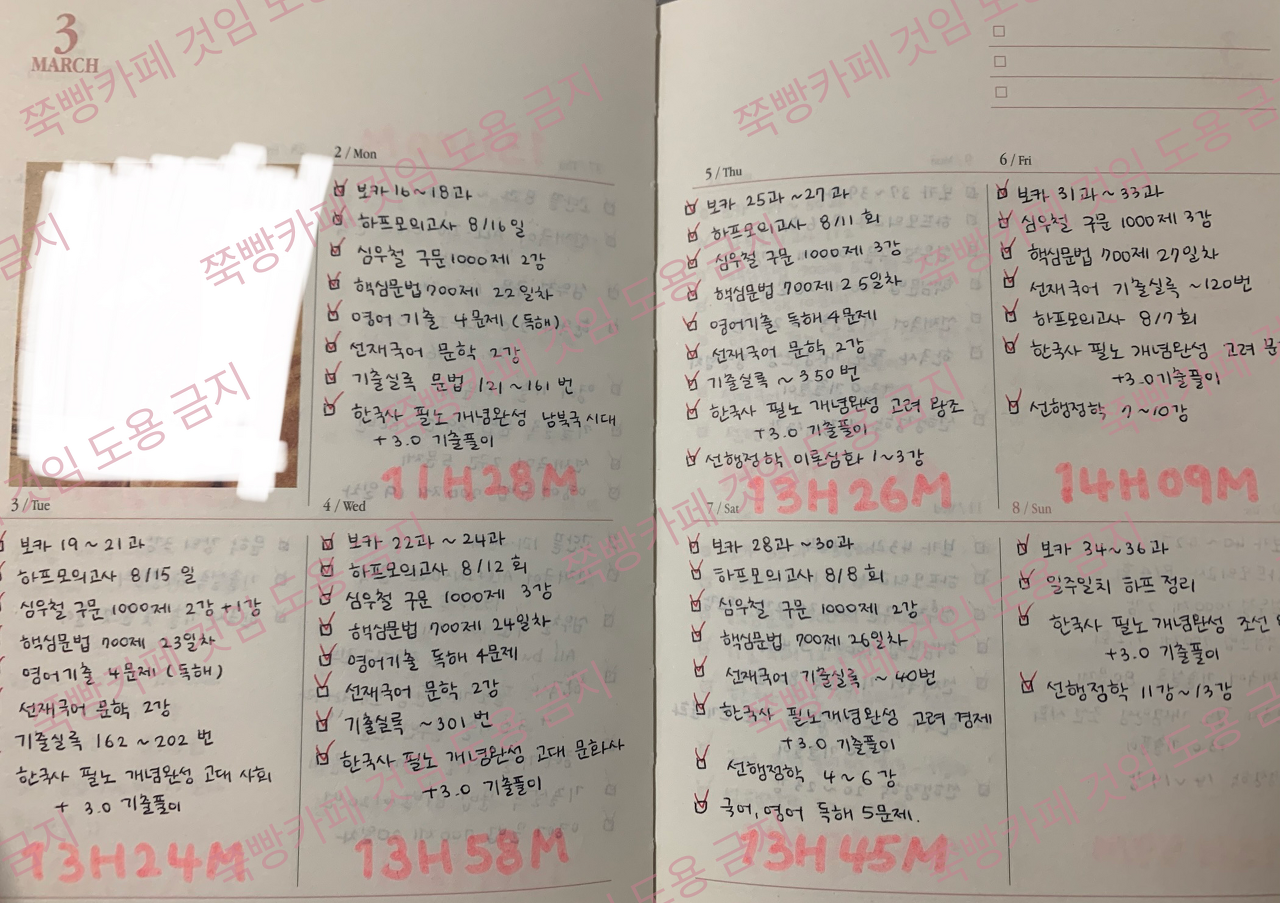 3
MARCH
2 / Mon
보카 16 ~ 18 과
하프모의고사 8/16 일
심우철 구문 1000제 2강
핵심문법 700제 22일차
영어 기출 4문제 (독해)
선재국어 문학 2강
기출실록 문법 121 ~ 161 번
한국사 필노 개념완성 남북국시대
+ 3.0 기출풀이
11H 28M
3 / Tue
보카 19 ~ 21 과
하프모의고사 8/15 일
심우철 구문 1000제 2강 +1강
핵심문법 700제 23일차
영어기출 4문제 (독해)
선재국어 문학 2강
기출실록 162 ~ 202 번
한국사 필노 개념완성 고대 사회
+ 3.0 기출풀이
13H 24M
4 / Wed
보카 22과 ~ 24과
하프모의고사 8/12 회
심우철 구문 1000제 3강
핵심문법 700제 24일차
영어기출 독해 4문제
선재국어 문학 2강
기출실록 ~301 번
한국사 필노 개념완성 고대 문화사
+3.0 기출풀이
13H 58M
5 / Thu
보카 25과 ~27과
하프모의고사 8/11 회
심우철 구문 1000제 3강
핵심문법 700제 25일차
영어기출 독해 4문제
선재국어 문학 2강
기출실록 ~ 350번
한국사 필노 개념완성 고려 왕조
+3.0 기출풀이
선행정학 이론심화 1~3강
13H 26M
6 / Fri
보카 31과~33과
심우철 구문 1000제 3강
핵심문법 700제 27일차
선재국어 기출실록 ~120번
하프모의고사 8/7회
한국사 필노 개념완성 고려 문
+3.0 기출풀이
선행정학 7~10강
14H 09M
7 / Sat
보카 28과~30과
하프모의고사 8/8 회
심우철 구문 1000제 2강
핵심문법 700제 26일차
선재국어 기출실록 ~ 40번
한국사 필노개념완성 고려 경제
+3.0 기출풀이
선행정학 4~6강
국어, 영어 독해 5문제.
13H 45M
8 / Sun
보카 34~36과
일주일치 하프 정리
한국사 필노 개념완성 조선
+3.0 기출풀이
선행정학 11강~13강
쭉빵카페 것임 도용 금지